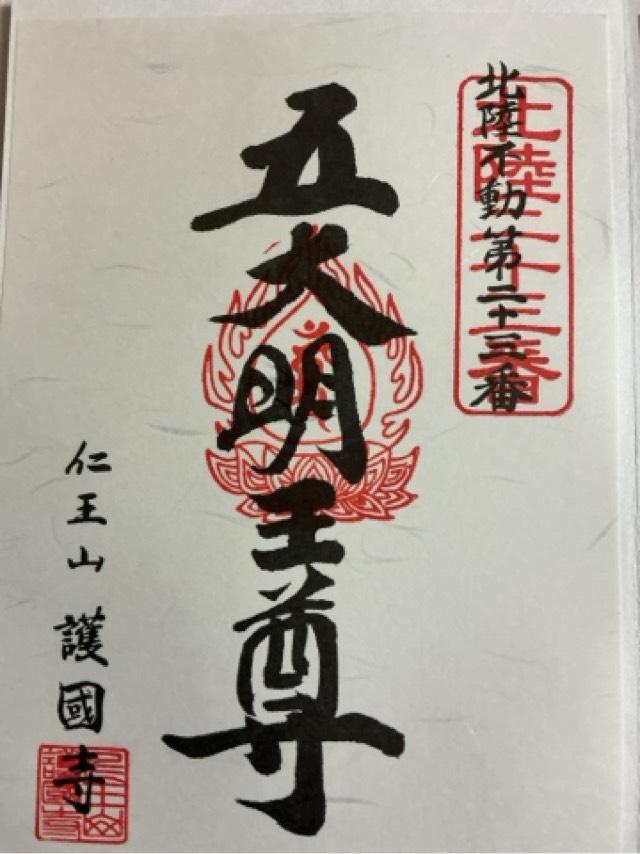 北陸不動第二十三番
北陸二十三番
五大明王尊
仁王山 護國寺